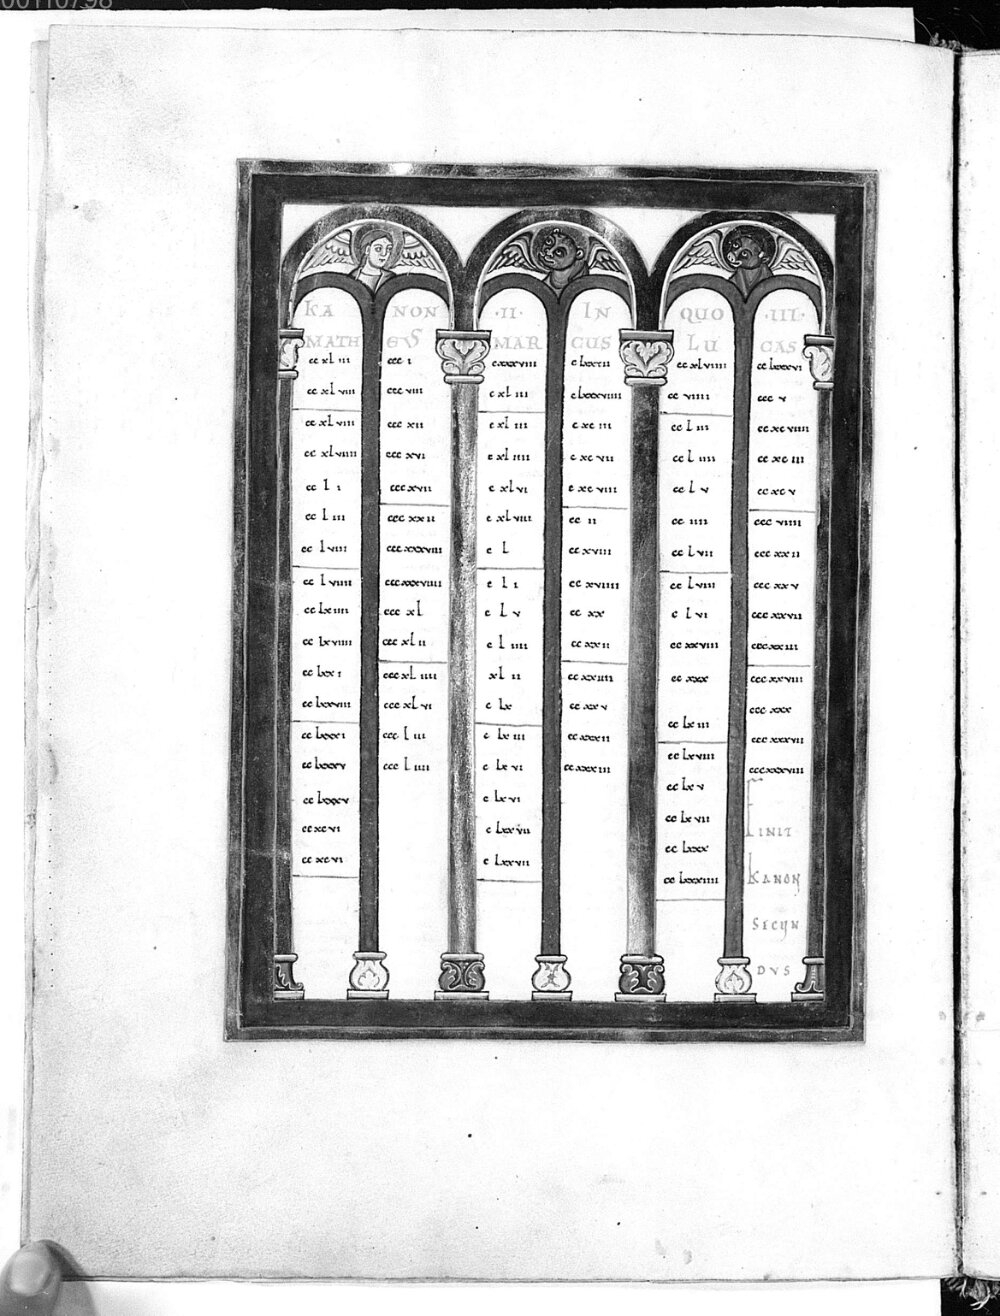 00110798
KA NON ·II· IN QUO ·III·
MATH EUS MAR CUS LU CAS
cc xl iii
cc xl viii
cc xl viii
cc xl viiii
cc l i
cc l iii
cc l viii
cc l viiii
cc lx iiii
cc lx viiii
cc lxx i
cc lxx viii
cc lxxx i
cc lxxx v
cc lxxx v
cc xc vi
cc xc vi
ccc i
ccc viii
ccc xii
ccc xvi
ccc xvii
ccc xx ii
ccc xxxviii
ccc xxxviiii
ccc xl
ccc xl ii
ccc xl iiii
ccc xl vi
ccc l iii
ccc l iiii
c xxxviii
c xl iii
c xl iii
c xl iiii
c xl vi
c xl viiii
c l
c l i
c l v
c l iiii
xl ii
c lx
c lx iii
c lx vi
c lx vi
c lxx vii
c lxx vii
c lxxv ii
c lxxxviiii
c xc iii
c xc vii
c xc viii
cc ii
cc xviii
cc xviiii
cc xx
cc xx ii
cc xx iiii
cc xx v
cc xxx ii
cc xxx iii
cc xlviiii
cc viiii
cc l iii
cc l iiii
cc l v
cc iiii
cc l vii
cc l viii
c l vi
cc xxviii
cc xxx
cc lx iii
cc lx viii
cc lx v
cc lx vii
cc lxxx
cc lxxxiiii
cc lxxxvi
ccc v
cc xc viiii
cc xc iii
cc xc v
ccc viiii
ccc xx ii
ccc xx v
ccc xxvii
ccc xx iii
ccc xxviii
ccc xxx
ccc xxxvii
ccc xxxviii
FINIT
KANON
SECUN
DVS